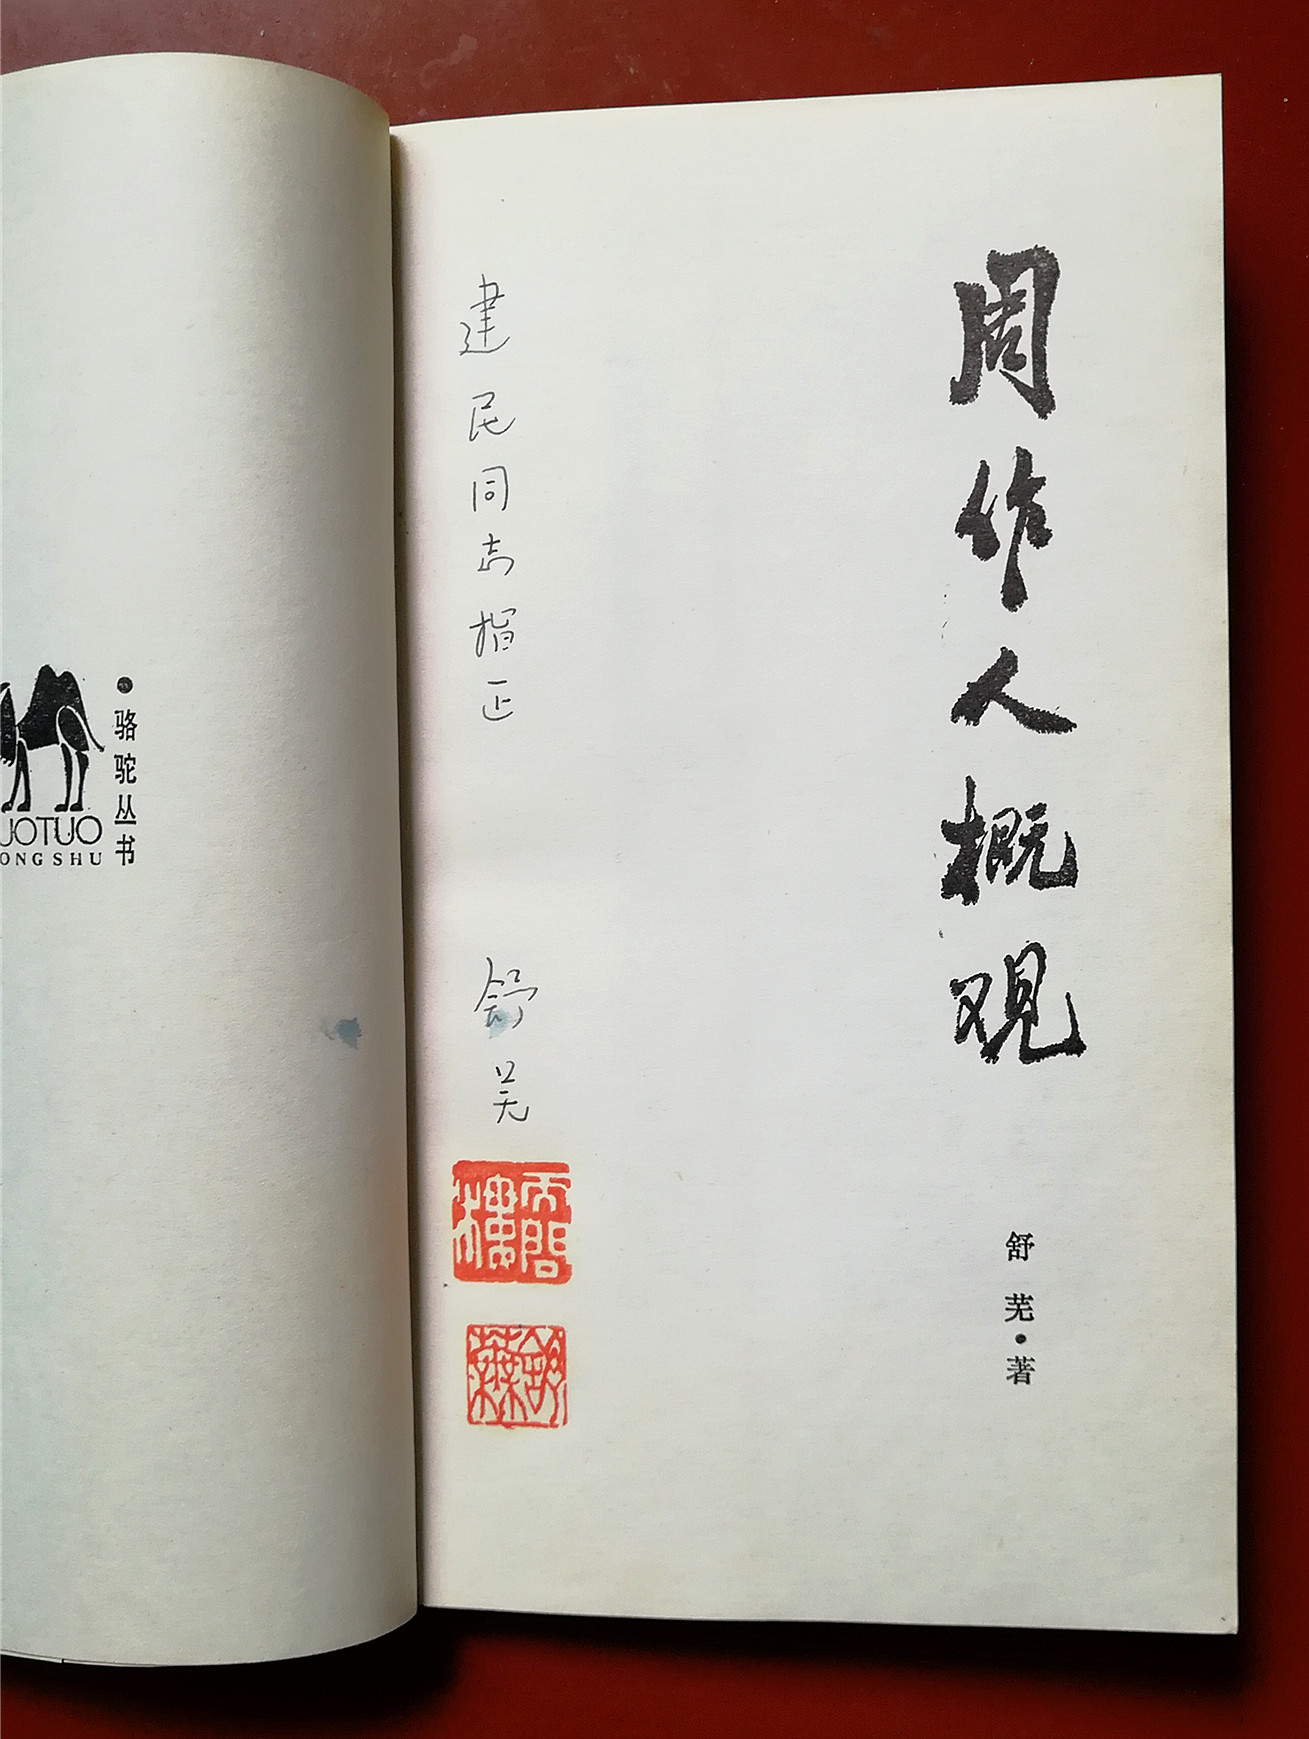 •骆驼丛书
UOTUO
ONGSHU
周作人概观
舒芜•著
建民同志指正
舒芜
天問樓
舒蕪